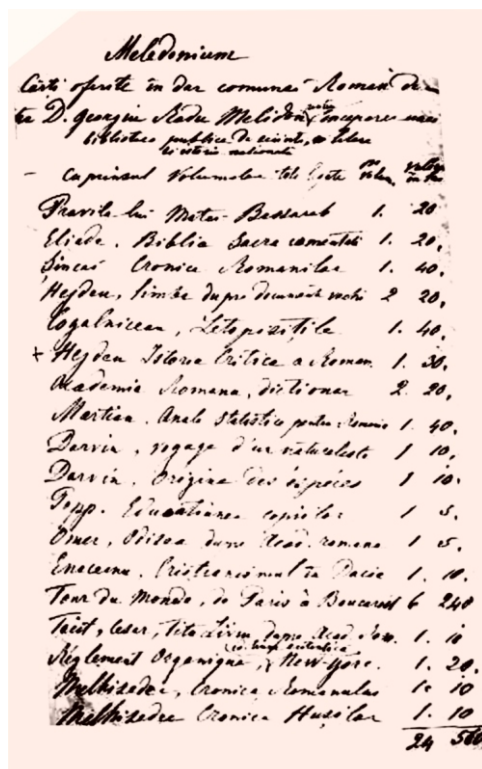 Meledonium
Cărti oferite în dar comunei Roman de
D. George Radu Melidon inceperea unei
bibliotece publice de sciinte, litere
si istorie nationala
Cuprinsul Volumelor No Volum. Valoarea
Pravila lui Mateiu Bassarab 1. 20.
Eliade. Biblia Sacra 1. 20.
Șincai Cronica Romanilor 1. 40.
Heșdeu, limba dupre documente vechi 2 20.
Cogalniceanu, Letopisițile 1. 40.
+ Heșdeu Istoria Critica a Roman. 1. 30.
Academia Romana, dictionar 2. 20.
Martian. Anale Statistice pentru Romania 1. 40.
Darvin, voyage d'un naturaliste 1 10.
Darvin. Origine des espéces 1 10.
Popp. Educatiunea copiilor 1 5.
Omer, Odisea dupre Acad. romana 1 5.
Enaceanu. Cristianismul in Dacia 1. 10.
Tour du Monde, de Paris à Boucarest 6 240
Tacit, Cesar, Tito Liviu dupre Acad. Rom. 1. 10
Réglement Organique, New-York. 1. 20.
Melhisedec, Cronica Romanului 1. 10
Melhisedec Cronica Hușilor 1. 10
24 560